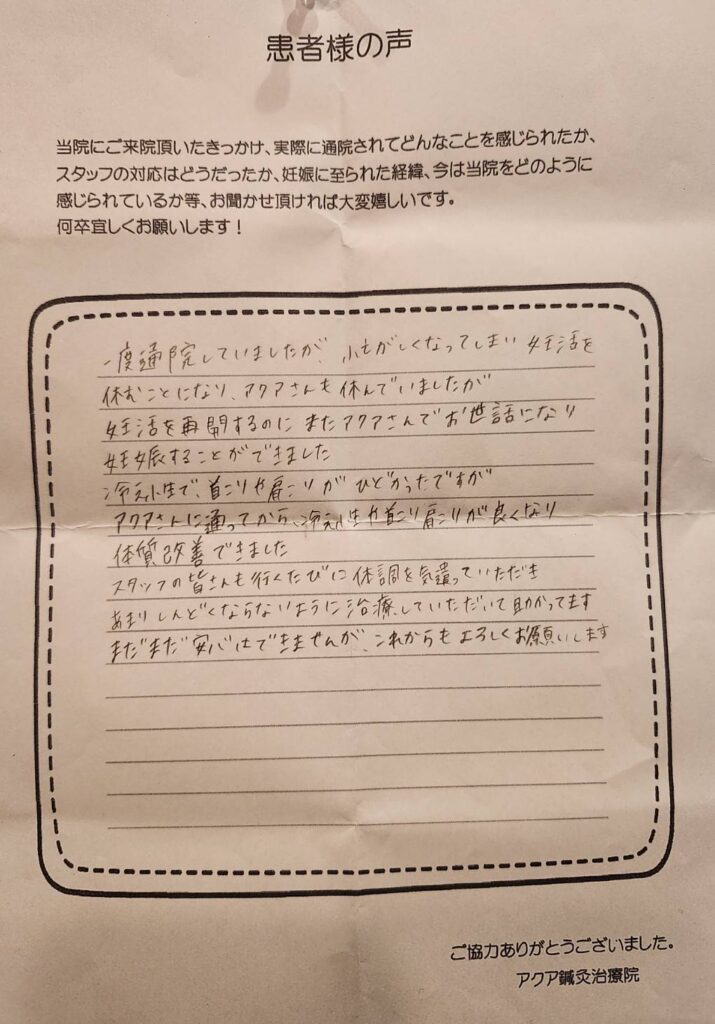 患者様の声
当院にご来院頂いたきっかけ、実際に通院されてどんなことを感じられたか、
スタッフの対応はどうだったか、妊娠に至られた経緯、今は当院をどのように
感じられているか等、お聞かせ頂ければ大変嬉しいです。
何卒宜しくお願いします！
一度通院していましたが、忙しくなってしまい 妊活を
休むことになり、アクアさんも休んでいましたが
妊活を再開するのに またアクアさんでお世話になり
妊娠することができました
冷え性で、首こりや肩こりが ひどかったですが
アクアさんに通ってから、冷え性や首こり肩こりが良くなり
体質改善できました
スタッフの皆さんも行くたびに体調を気遣っていただき
あまりしんどくならないように治療していただいて助かってます
まだまだ安心はできませんが、これからもよろしくお願いします
ご協力ありがとうございました。
アクア鍼灸治療院